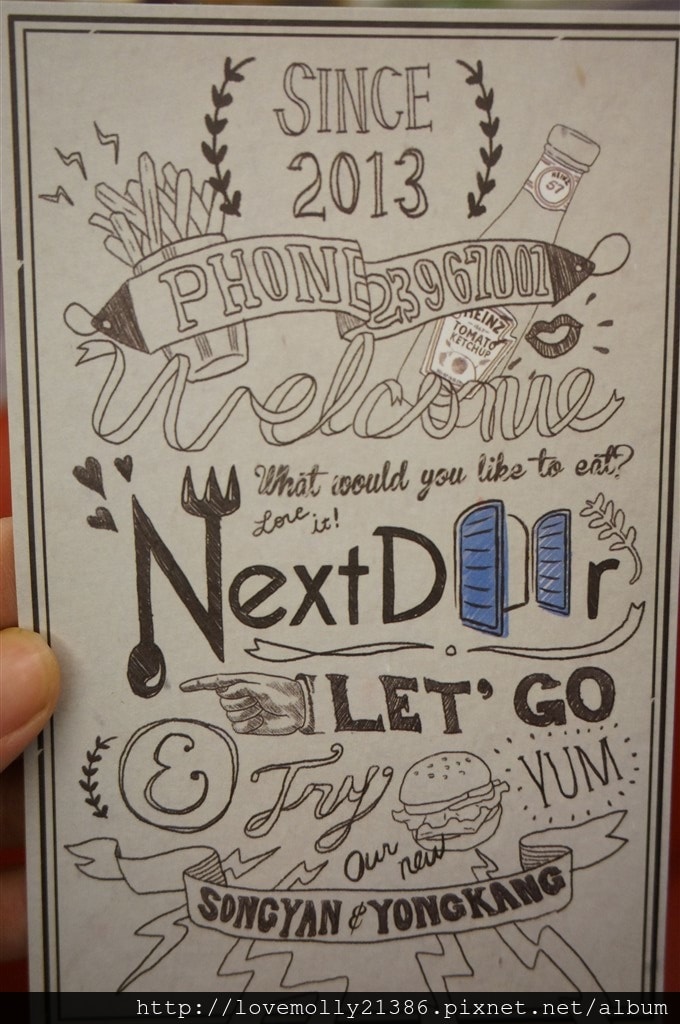 SINCE
2013
HEINZ
57
PHONE 23967001
HEINZ
TOMATO
KETCHUP
Welcome
What would you like to eat?
Love it!
NextDoor
LET' GO
& Try YUM
our new
SONGYAN & YONGKANG
http://lovemolly21386.pixnet.net/album